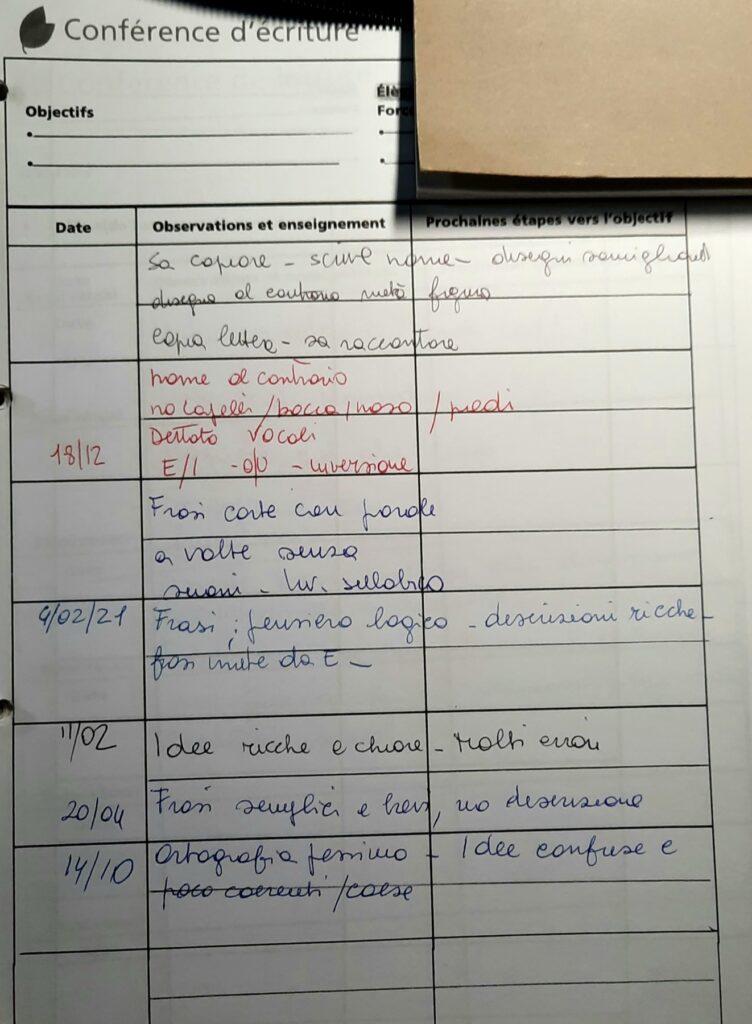 Conférence d'écriture
Objectifs
Élè
Forc
Date Observations et enseignement Prochaines étapes vers l'objectif
Sa copiare - scrive nome - disegni somiglianti
disegno al contrario metà figura
Copia lettera - sa raccontare
nome al contrario
no capelli / bocca / naso / piedi
Dettato vocali
18/12 E/I - O/U - inversione
Frasi corte con parole
a volte senza
suoni - liv. sillabico
9/02/21 Frasi ; pensiero logico - descrizioni ricche -
frasi unite da E -
11/02 Idee ricche e chiare - Molti errori
20/04 Frasi semplici e brevi, no descrizione
14/10 Ortografia pessima - Idee confuse e
poco coerenti / coese